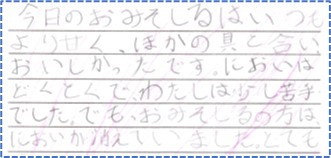 今日のおみそしるはいつも
より甘く、ほかの具と合い
おいしかったです。においは
どくとくで、わたしは少し苦手
でした。でも、おみそしるの方は、
においが消えていました。とても